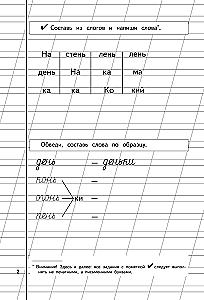 ✔ Составь из слогов и напиши слова*.
На стень лень лень
день На ка ма
ка ка Ко кий
Обведи, составь слова по образцу.
день — деньки
конь —
огонь ки —
пень —
* Внимание! Здесь и далее все задания с пометкой ✔ следует выпол-
нять не печатными, а письменными буквами.
2